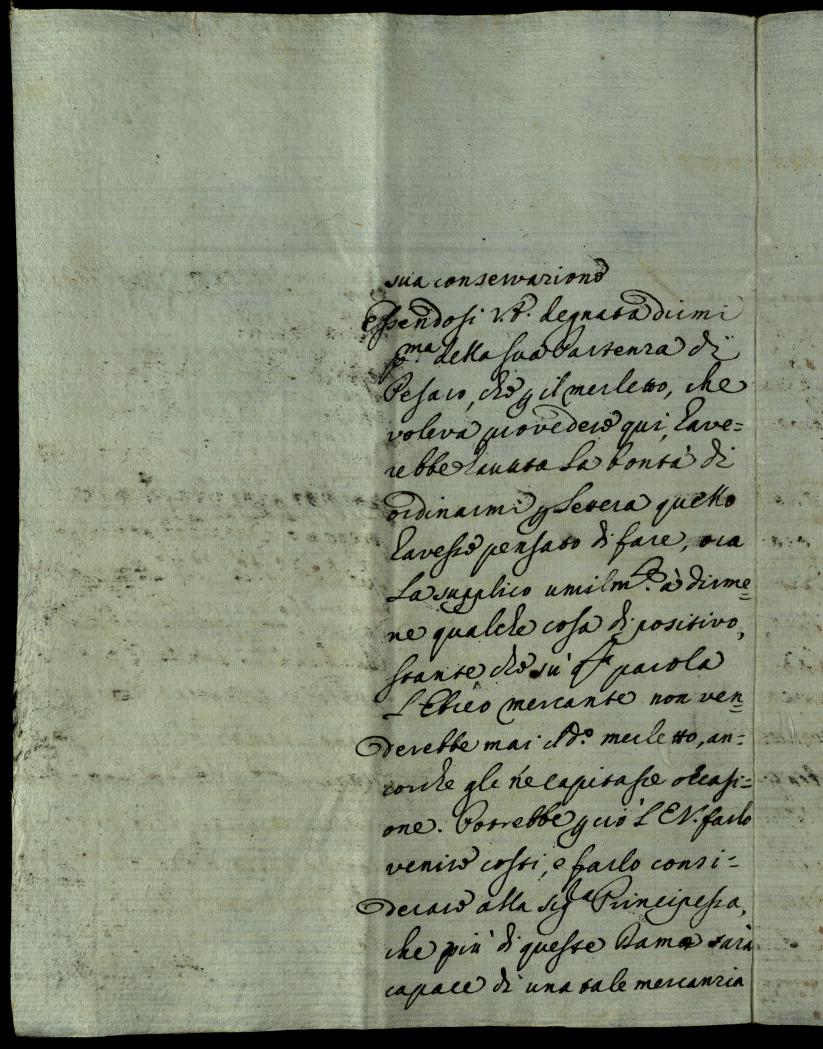 sua conservazione
Essendosi V.E. degnata dirmi
p.ma della sua Partenza di
Pesaro, che p il merletto, che
voleva provedere qui, have=
rebbe havuta la bontà di
ordinarmi p lettera quello
havesse pensato di fare, ora
La supplico umilm.te à dirme=
ne qualche cosa di positivo,
stante che su' q.sta parola
L'Ebreo mercante non ven=
derebbe mai il d.o merletto, an=
corche gli ne capitasse occasi=
one. Potrebbe p ciò L'E.V. farlo
venire costì, e farlo consi=
derare alla Sig.ra Principessa,
che più di queste Dame sarà
capace di una tale mercanzia